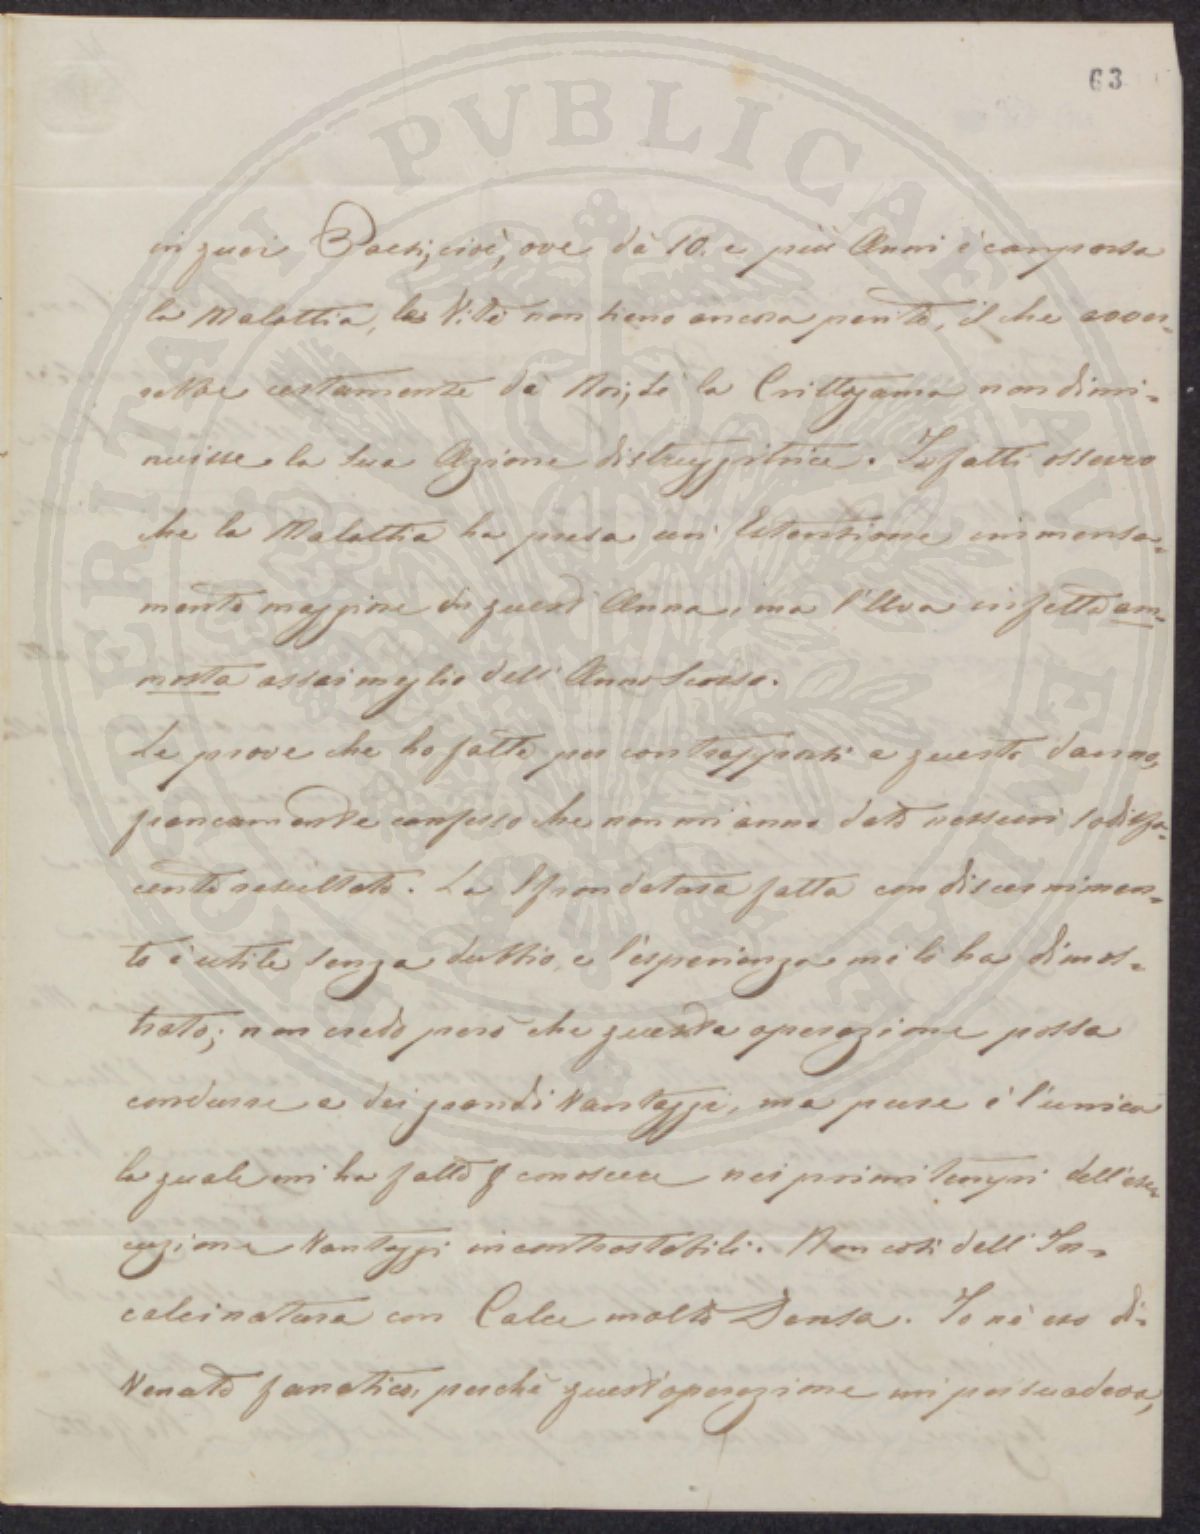 63
in quei Paesi, cioè, ove dà 10. e più Anni è comparsa
la Malattia, le Viti non sieno ancora perite, il che avver-
rebbe certamente dà Noi, se la Crittogama non dimi-
nuisse la sua Azione distruggitrice. Infatti osservo
che la Malattia ha presa un'Estensione immensa-
mente maggiore in quest'Anno, ma l'Uva infetta am-
mosta assai meglio dell'Anno Scorso.
Le prove che ho fatte per contrapporsi a questo danno,
francamente confesso che non mi anno dato nessun sodisfa-
cente resultato. La Sfrondatura fatta con discernimen-
to è utile senza dubbio, e l'esperienza me lo ha dimos-
trato; non credo però che questa operazione possa
condurre a dei grandi Vantaggi, ma pure è l'unica
la quale mi ha fatto conoscere nei primi tempi dell'ese-
cuzione Vantaggi incontrastabili. Non così dell'In-
calcinatura con Calce molto Densa. Io nè ero di-
Venuto fanatico, perchè quest'operazione mi persuadeva,
PVBLICAE